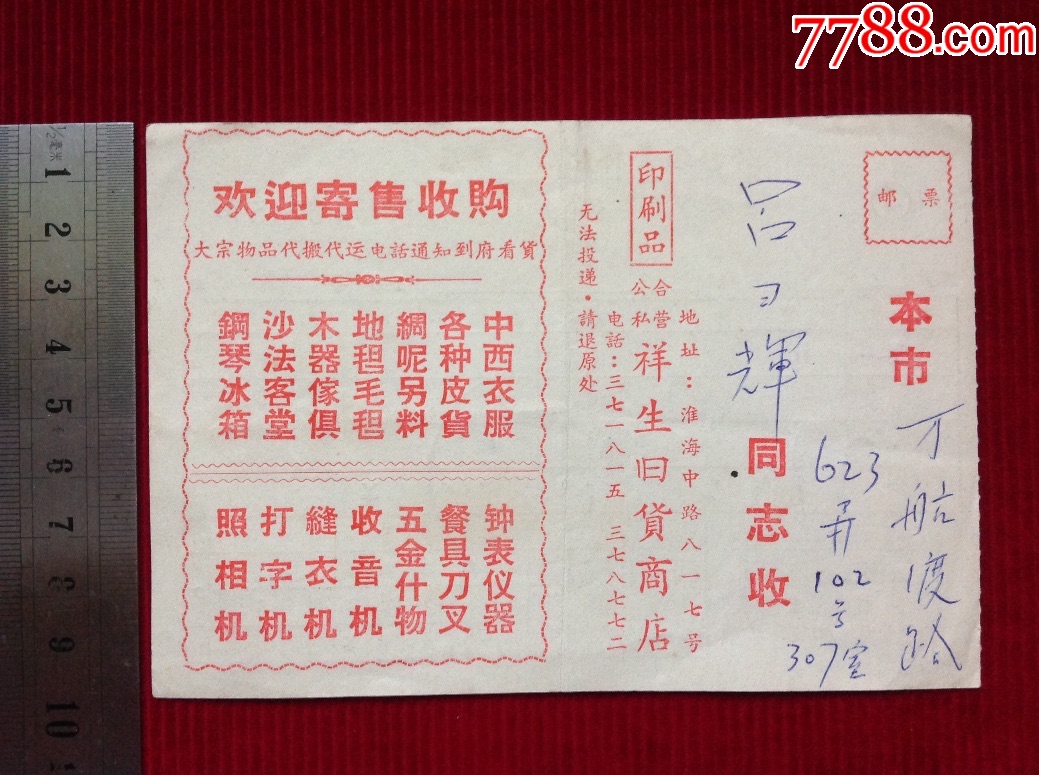 7788.com
邮票
本市
万航渡路
623弄102号
307室
吕
輝
同志收
印刷品
公私合营
祥生旧貨商店
地址:淮海中路八一七号
电話:三七一八一五 三七八七七二
无法投递·請退原处
欢迎寄售收购
大宗物品代搬代运电話通知到府看貨
中西衣服
各种皮貨
綢呢另料
地毯毛毯
木器傢俱
沙法客堂
鋼琴冰箱
钟表仪器
餐具刀叉
五金什物
收音机
縫衣机
打字机
照相机
1/2毫米
1
2
3
4
5
6
7
8
9
10